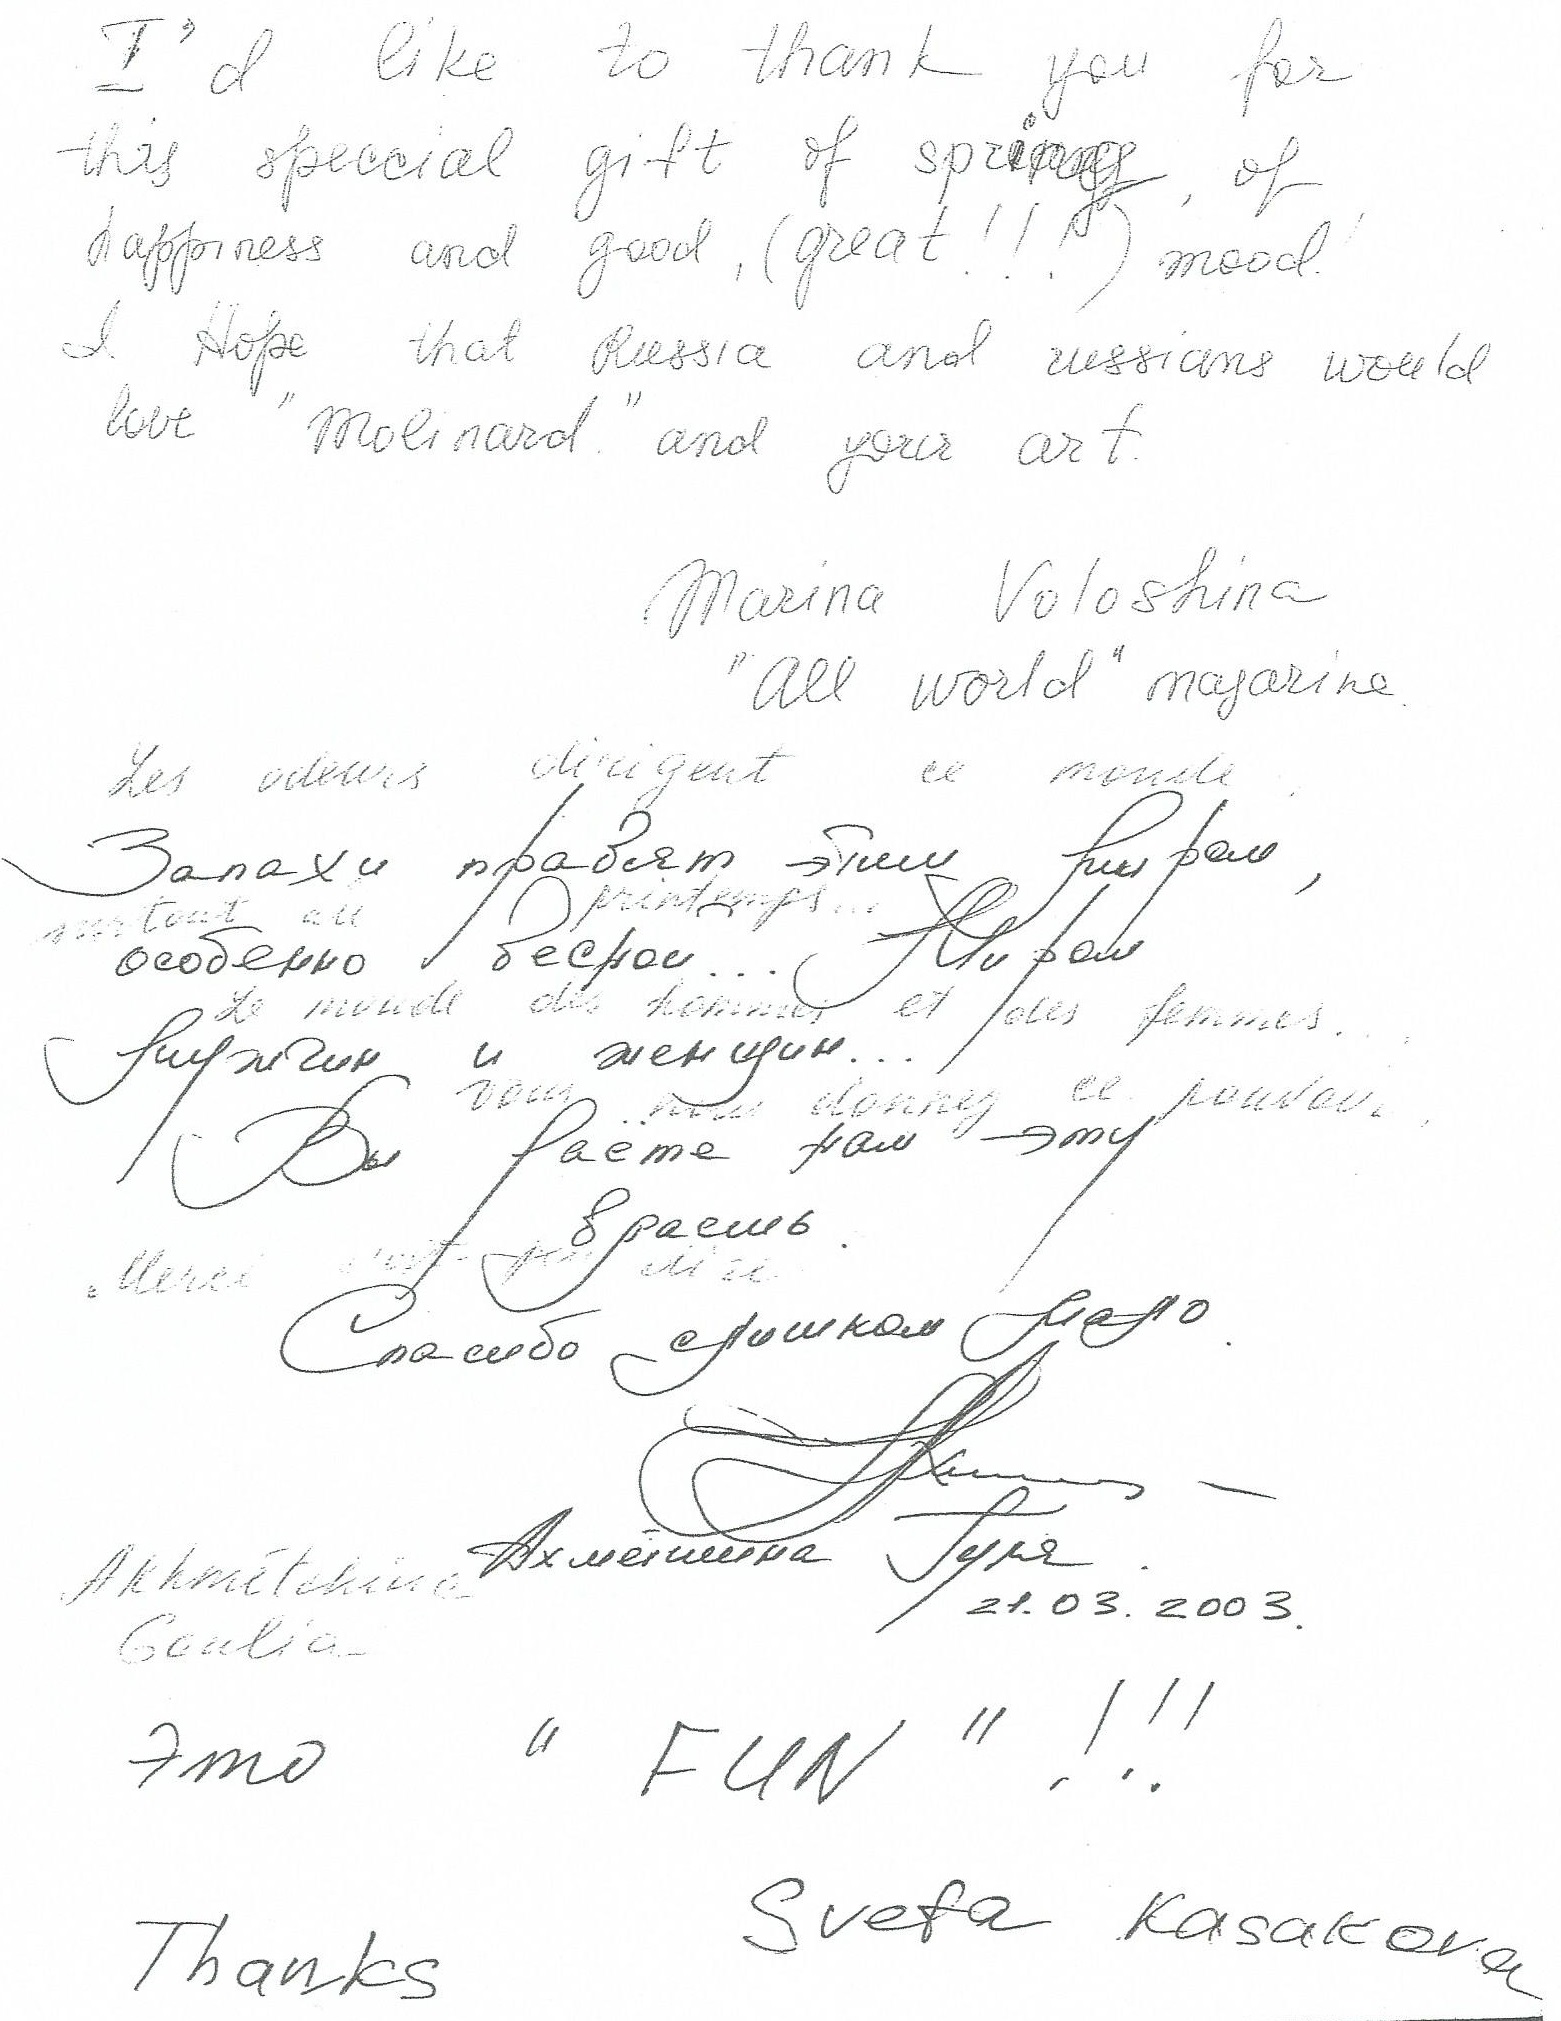 I'd like to thank you for
this speccial gift of spring, of
happiness and good, (great!!!) mood!
I Hope that Russia and russians would
love "Molinard." and your art.
Marina Voloshina
"All world" magazine.
Les odeurs dirigent ce monde,
Запахи правят этим миром,
surtout au printemps...
особенно весной... Миром
Le monde des hommes et des femmes...
мужчин и женщин...
Vous nous donnez ce pouvoir.
Вы даёте нам эту
власть.
Merci c'est peu dire
Спасибо слишком мало.
Ахметшина Гуля.
Akhmétchina
21.03.2003.
Goulia
Это "FUN"!!!
Sveta Kasakova
Thanks